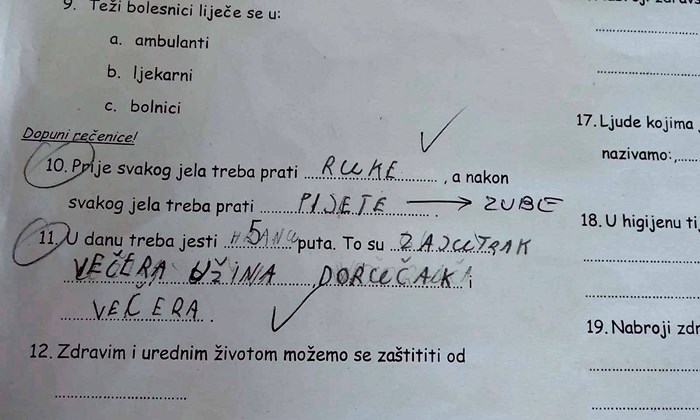 9. Teži bolesnici liječe se u:
a. ambulanti
b. ljekarni
c. bolnici
Dopuni rečenice!
10. Prije svakog jela treba prati RUKE , a nakon
svakog jela treba prati PIJETE → ZUBE .
11. U danu treba jesti 5 puta. To su ZAJUTRAK
VEČERA UŽINA , DORUČAK i
VEČERA .
12. Zdravim i urednim životom možemo se zaštititi od
17. Ljude kojima
nazivamo:
18. U higijenu ti
19. Nabroji zdr